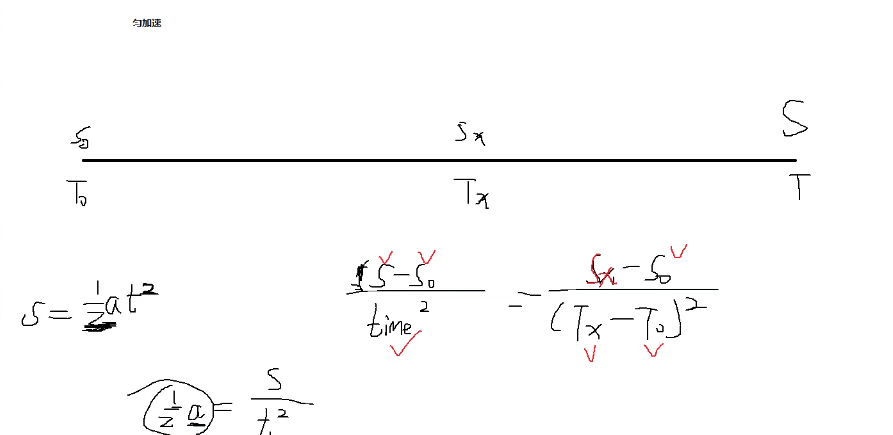 匀加速
S₀ Sx S
T₀ Tx T
S = 1/2 a t² (S - S₀) / time² = (Sx - S₀) / (Tx - T₀)²
1/2 a = S / t²